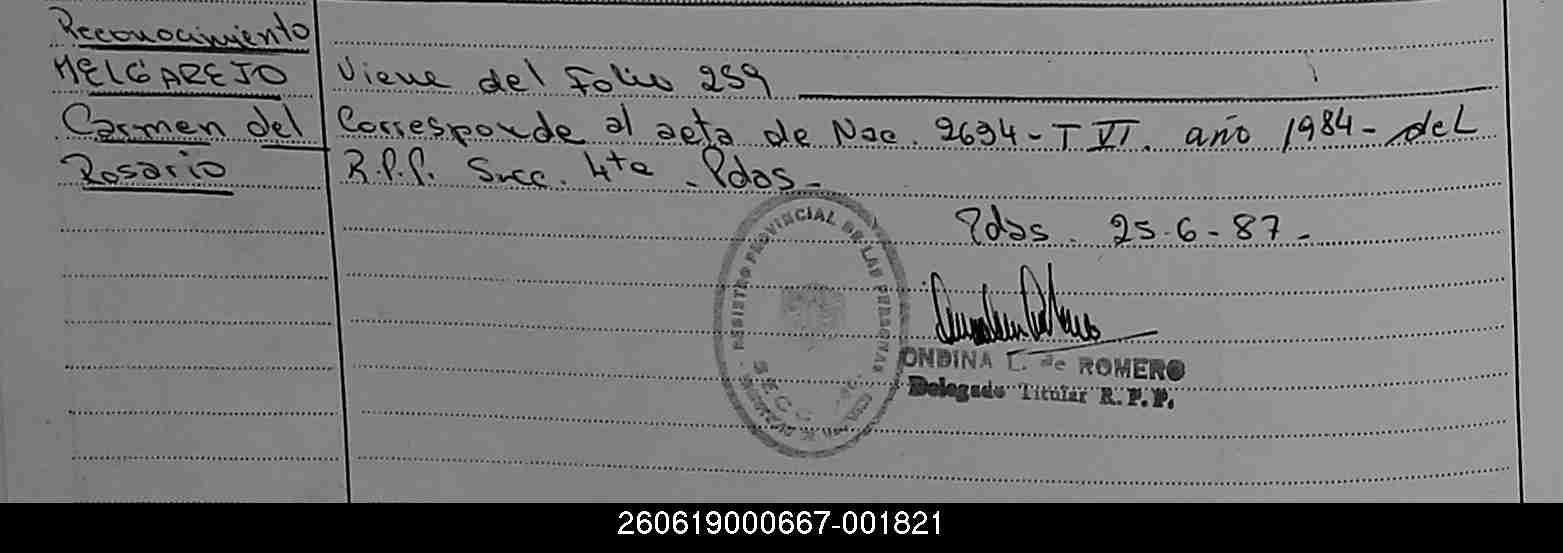 Reconocimiento
MELGAREJO
Carmen del
Rosario
Viene del Folio 259
Corresponde al acta de Nac. 2694 - T VI. año 1984 - del
R.P.P. Secc. 4ta - Pdas -
Pdas. 25-6-87-
REGISTRO PROVINCIAL DE LAS PERSONAS
SECC
ONDINA L. de ROMERO
Delegado Titular R. P. P.
260619000667-001821